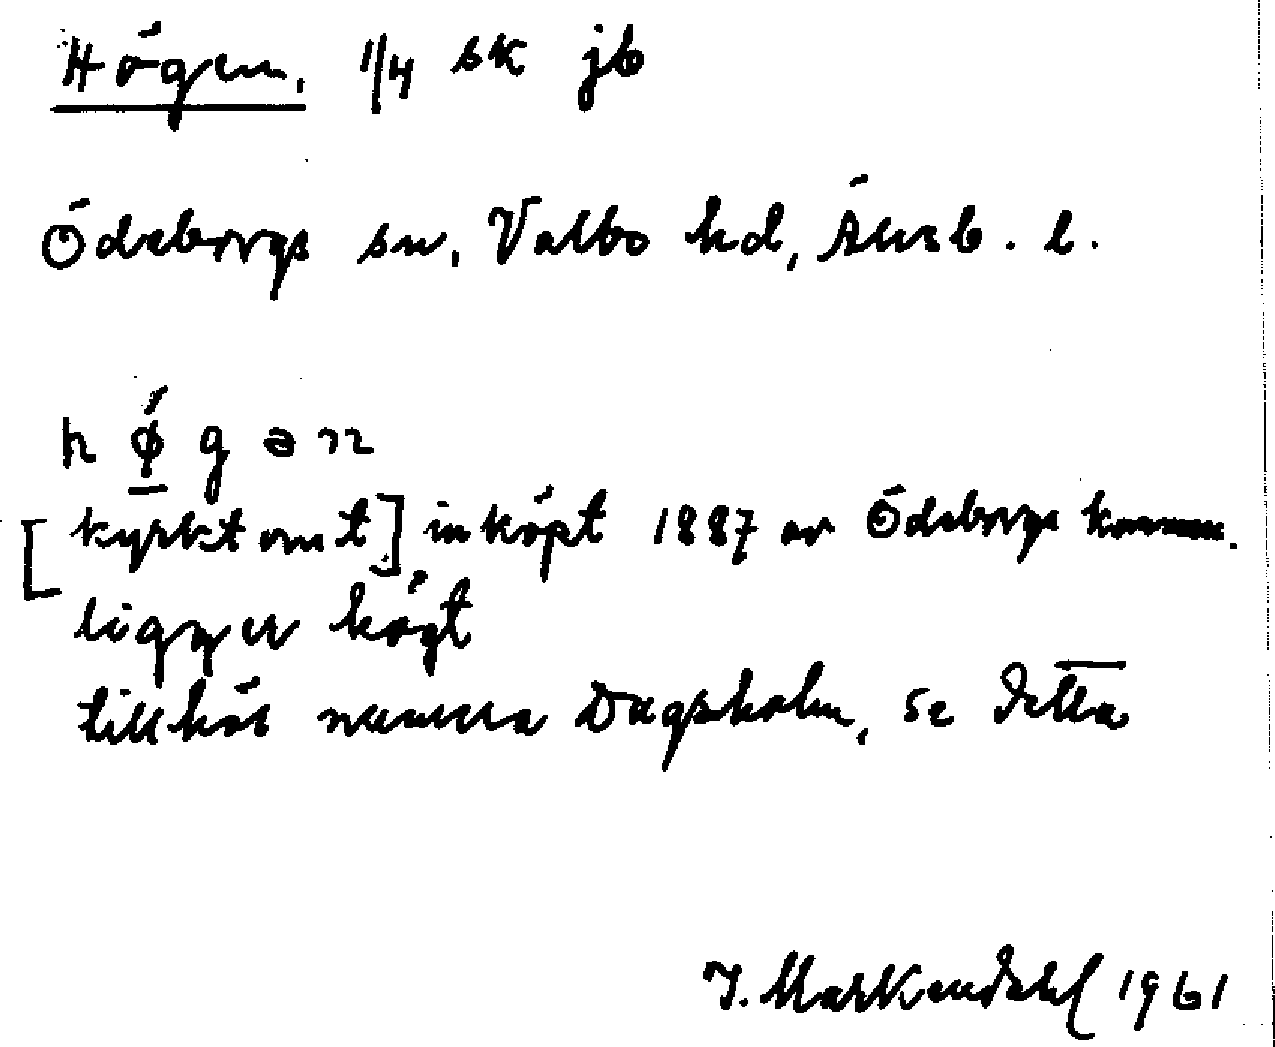 Högen, 1/4 sk jb
Ödeborgs sn, Valbo hd, Älvsb. l.
h ǿ g ə n
[kyrktomt] inköpt 1887 av Ödeborgs komm.
ligger högt
tillhör numera Dagsholm, se detta
I. Markendahl 1961